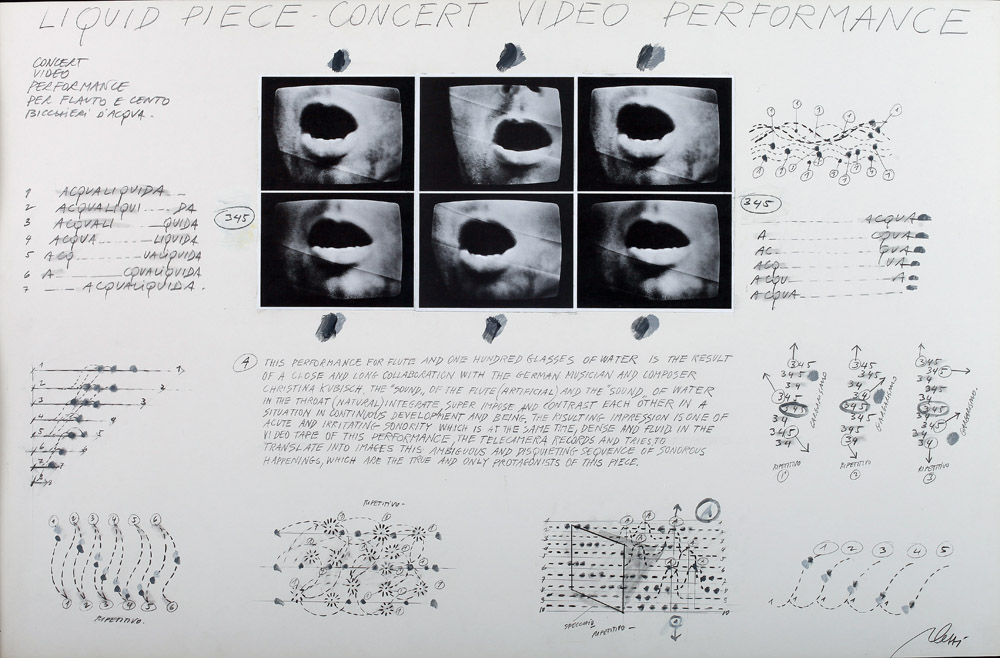 LIQUID PIECE - CONCERT VIDEO PERFORMANCE
CONCERT
VIDEO
PERFORMANCE
PER FLAUTO E CENTO
BICCHIERI D'ACQUA.
1 ACQUALIQUIDA
2 ACQUALIQUI DA
3 ACQUALI QUIDA
4 ACQUA LIQUIDA
5 ACQ UALIQUIDA
6 A CQUALIQUIDA
7 ACQUALIQUIDA.
345
345
ACQUA
A CQUA
AC QUA
ACQ UA
ACQU A
ACQUA
4 THIS PERFORMANCE FOR FLUTE AND ONE HUNDRED GLASSES OF WATER IS THE RESULT
OF A CLOSE AND LONG COLLABORATION WITH THE GERMAN MUSICIAN AND COMPOSER
CHRISTINA KUBISCH. THE "SOUND, OF THE FLUTE (ARTIFICIAL) AND THE "SOUND, OF WATER
IN THE THROAT (NATURAL) INTEGRATE, SUPER IMPOSE AND CONTRAST EACH OTHER IN A
SITUATION IN CONTINUOUS DEVELOPMENT AND BEING, THE RISULTING IMPRESSION IS ONE OF
ACUTE AND IRRITATING SONORITY WHICH IS AT THE SAME TIME, DENSE AND FLUID. IN THE
VIDEO TAPE OF THIS PERFORMANCE, THE TELECAMERA RECORDS AND TRIES TO
TRANSLATE INTO IMAGES THIS AMBIGUOUS AND DISQUIETING SEQUENCE OF SONOROUS
HAPPENINGS, WHICH ARE THE TRUE AND ONLY PROTAGONISTS OF THIS PIECE.
345 345 345
345 345 345
34 34 34
345 345 345
34 34 34
345 345 345
34 34 34
RIPETITIVO RIPETITIVO RIPETITIVO
1 2 3
1 2 3 4 5 6
1 2 3 4 5 6
RIPETITIVO.
RIPETITIVO-
SPECCHIO
RIPETITIVO-
1 2 3 4 5